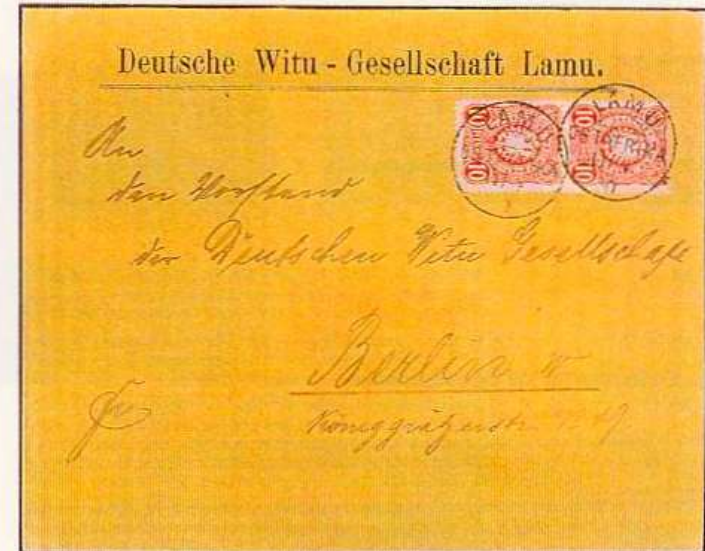 Deutsche Witu - Gesellschaft Lamu.
10 10
LAMU LAMU
OSTAFRIKA
10 10
An
den Vorstand
der Deutschen Witu Gesellschaft
Berlin W
Königgrätzerstr.